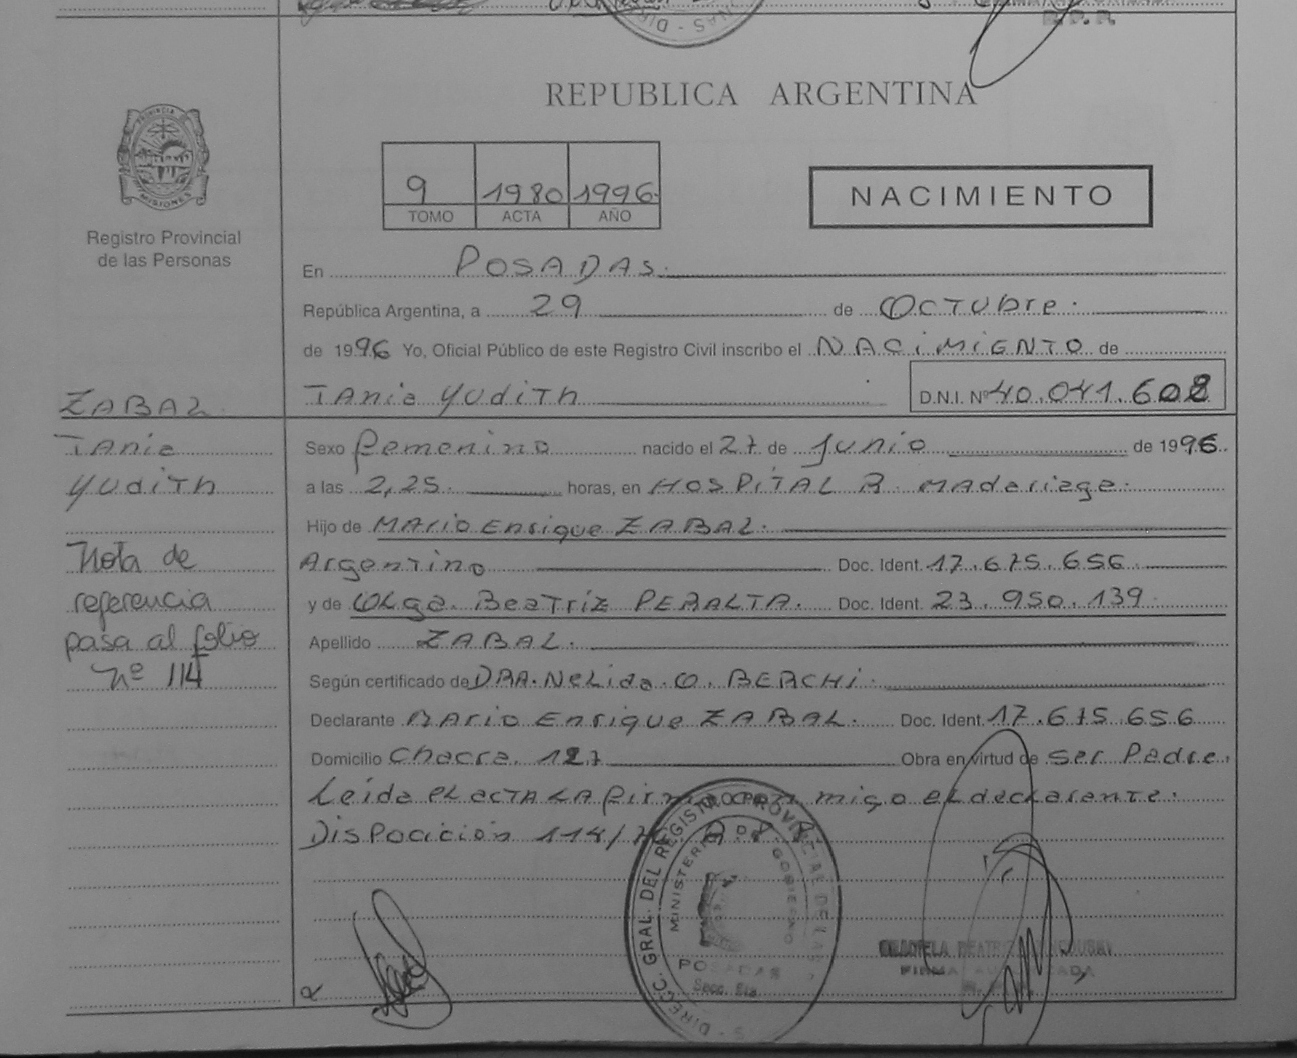 R. P. P.
REPUBLICA ARGENTINA
PROVINCIA DE
MISIONES
Registro Provincial
de las Personas
9 1980 1996
TOMO ACTA AÑO
NACIMIENTO
En POSADAS.
República Argentina, a 29 de OCTUbre.
de 1996 Yo, Oficial Público de este Registro Civil inscribo el NACiMiENTO de
TAnia YUdiTh D.N.I. Nº 40.041.608
ZABAL
TAnia
YUdiTh
Nota de
referencia
pasa al folio
Nº 114
Sexo femenino nacido el 27 de Junio de 1996.
a las 2,25. horas, en HOSPiTAL R. MAdariaga.
Hijo de MArio Enrique ZABAL.
Argentino Doc. Ident. 17.675.656
y de OLga. BeaTriz PERALTA. Doc. Ident. 23.950.139
Apellido ZABAL.
Según certificado de DRA. NeLida. O. BERCHi.
Declarante MArio Enrique ZABAL. Doc. Ident. 17.675.656
Domicilio Chacra. 127 Obra en virtud de Ser Padre.
Leida eL acTA LA firma con migo el declarante.
DisPocición 114/
DIREC. GRAL. DEL REGISTRO PROVINCIAL DE LAS
MINISTERIO DE GOBIERNO
POSADAS
Secc. 5ta.
FIRMA AUTORIZADA